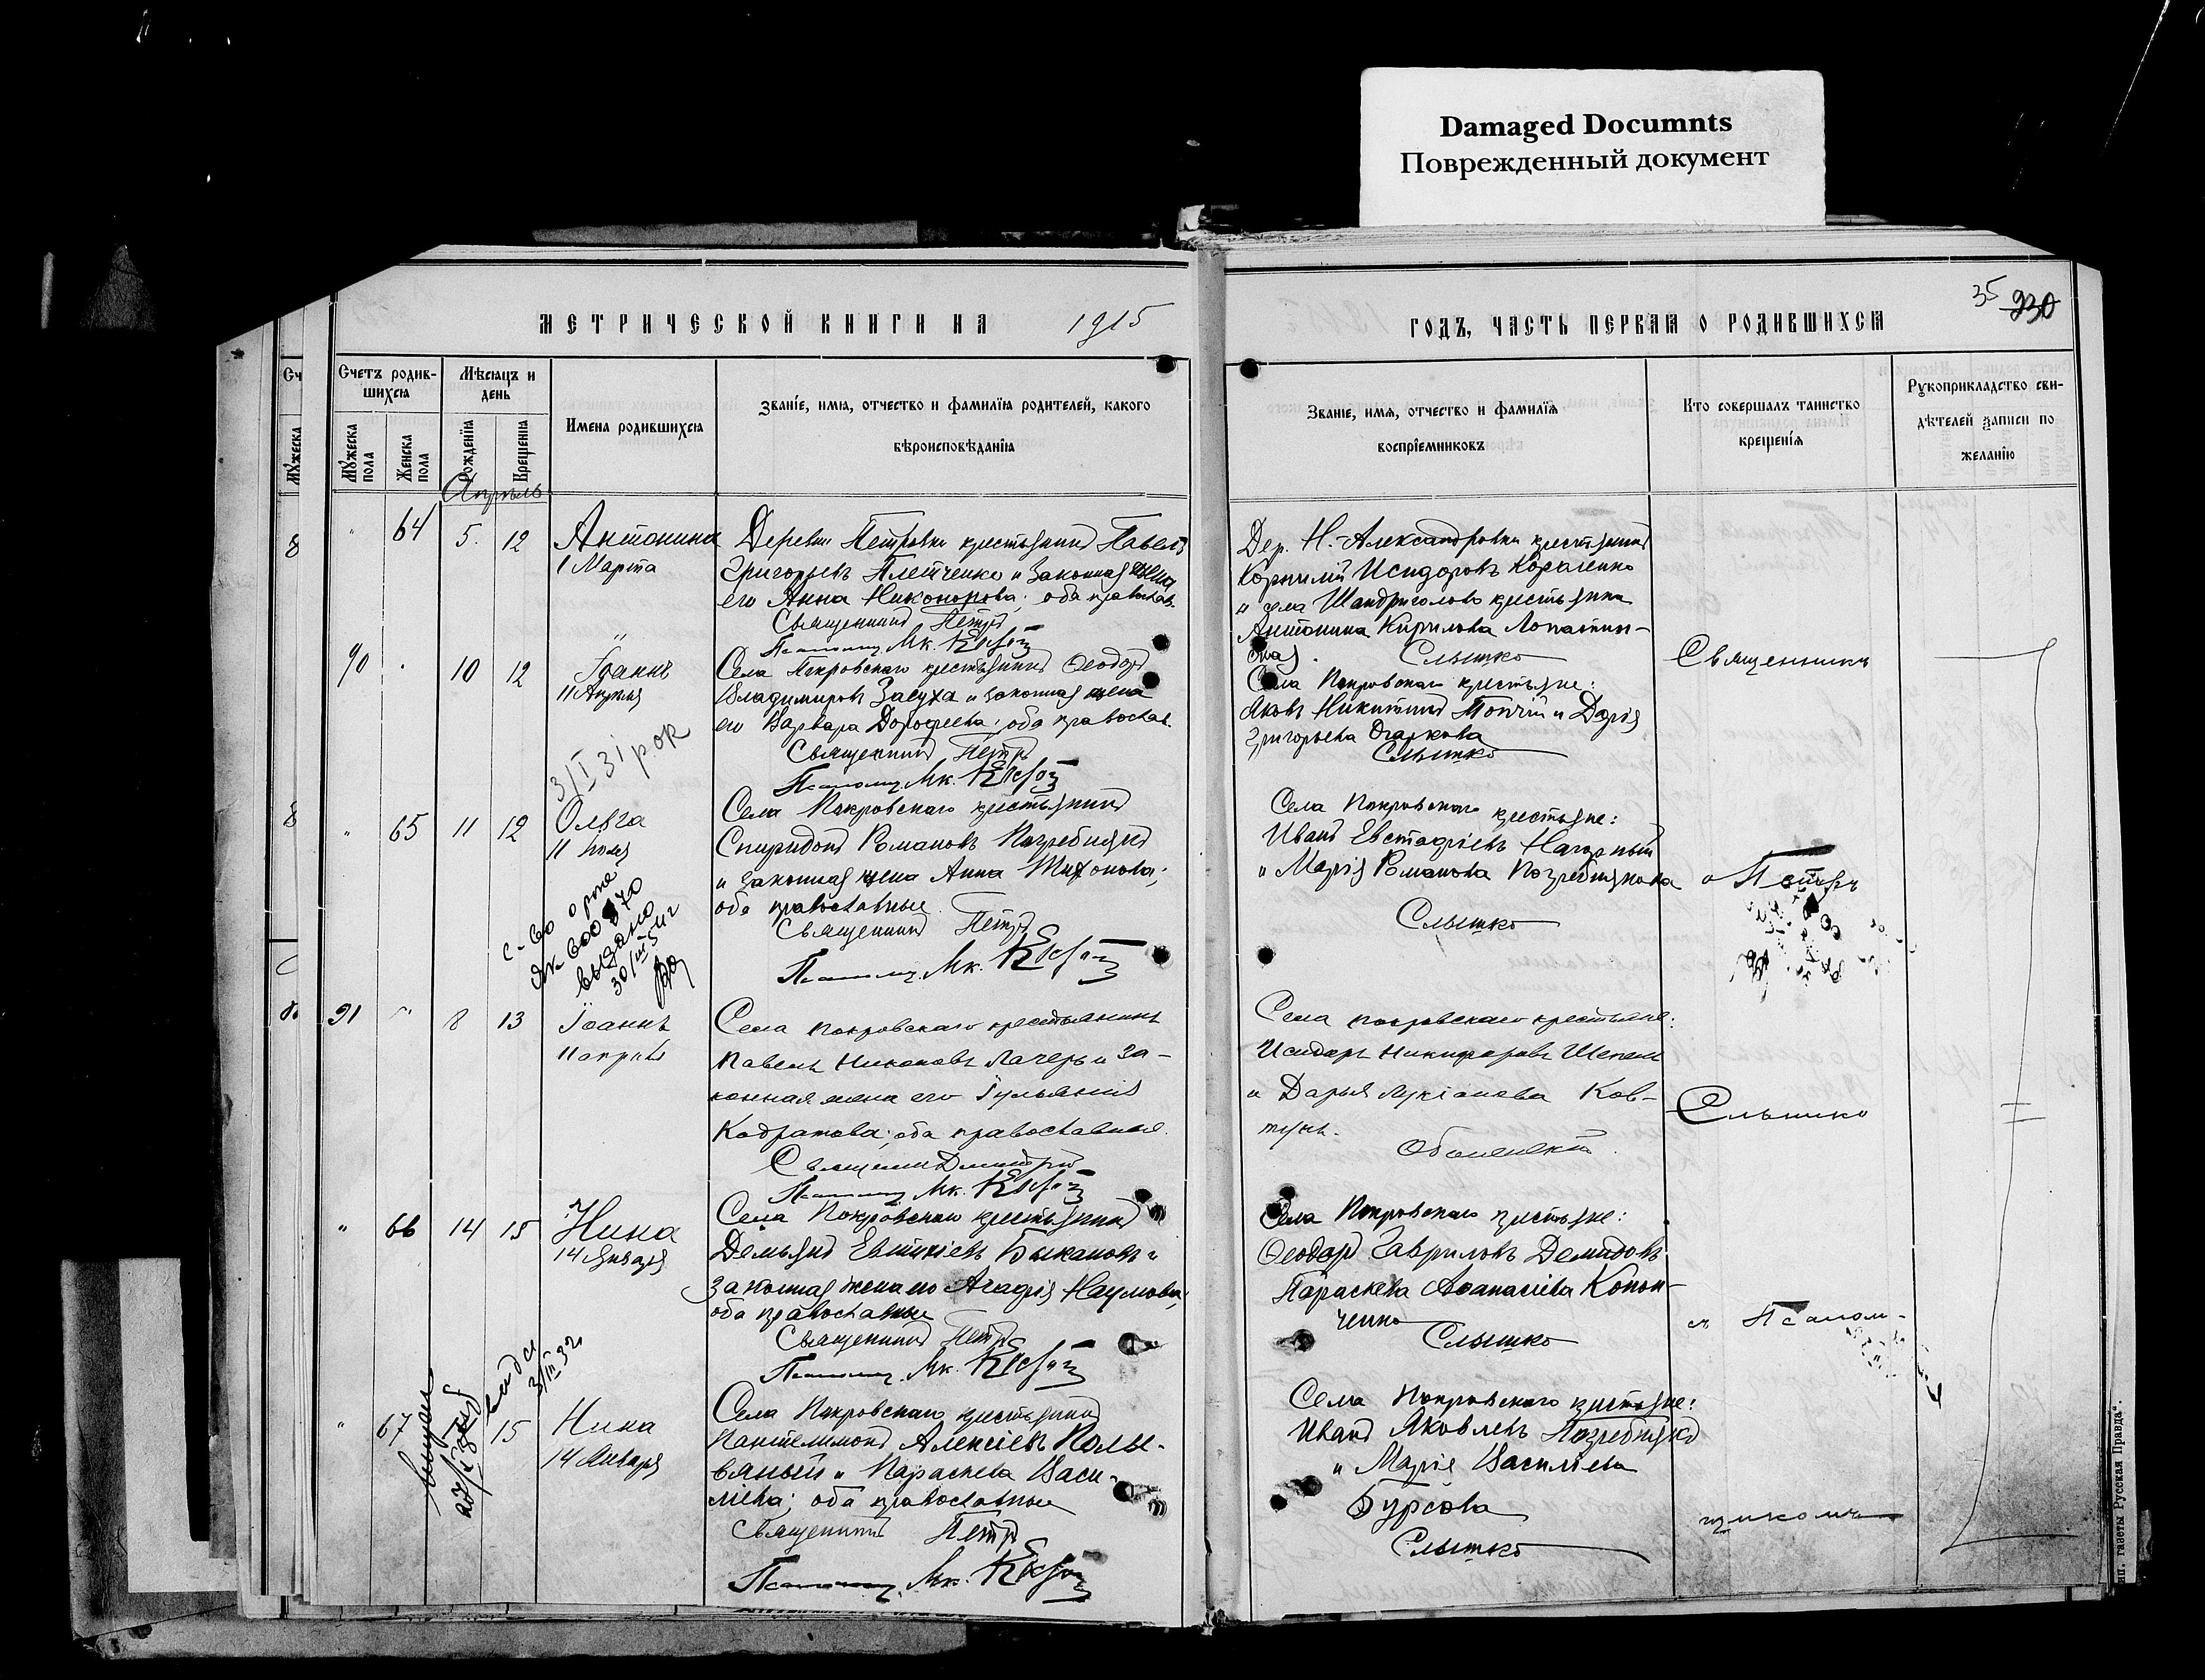 Damaged Documnts
Поврежденный документ
МЕТРИЧЕСКОЙ КНИГИ НА 1915
ГОДЪ, ЧАСТЬ ПЕРВАЯ О РОДИВШИХСЯ
35 930
Сч
Мужеска
Счетъ родив-
шихся
Мужеска пола
Женска пола
Мѣсяцъ и
день
Рожденія
Крещенія
Имена родившихся
Званіе, имя, отчество и фамилія родителей, какого
вѣроисповѣданія
Званіе, имя, отчество и фамилія
воспріемниковъ
Кто совершалъ таинство
крещенія
Рукоприкладство сви-
дѣтелей записи по
желанію
Апрѣль
" 64 5. 12 Антонина
1 Марта
Деревни Петровки крестьянинъ Павелъ
Григорьевъ Плетченко и законная жена
его Анна Никонорова; оба православ.
Священникъ Петръ
Дер. Н.-Александровки крестьянинъ
Корнилій Исидоровъ Коваленко
и села Шандриголово крестьянка
Антонина Кирилова Лопатин-
Слышко
90 10 12 Іоаннъ
11 Апрѣля
Села Покровскаго крестьянинъ Ѳеодоръ
Владимировъ Засуха и законная жена
его Варвара Дорофеева; оба православ.
Священникъ Петръ
Села Покровскаго крестьяне:
Яковъ Никитинъ и Дарія
Григорьева Огаркова
Слышко
Священникъ
3/I 31 рок
" 65 11 12 Ольга
11 Іюля
Села Покровскаго крестьянинъ
Спиридонъ Романовъ Погребнякъ
и законная жена Анна Тихонова;
оба православные
Священникъ Петръ
Села Покровскаго крестьяне:
Иванъ Евстафіевъ Нагорный
и Марія Романова Погребнякова
Слышко
Петръ
выдано
91 " 8 13 Іоаннъ
11 апрѣля
Села Покровскаго крестьянинъ
Павелъ Никоновъ Лагерь и за-
конная жена его Іульянія
Кодратова; оба православные.
Священник Димитрій
Села Покровскаго крестьяне:
Исидоръ Никифоровъ Шепель
и Дарья Лукіанова Ков-
тунъ.
Оболенскій
Слышко
" 66 14 15 Нина
14 Января
Села Покровскаго крестьянинъ
Демьянъ Евтихіевъ Быкановъ и
законная жена его Агафія Наумова;
оба православные
Священникъ Петръ
Села Покровскаго крестьяне:
Ѳеодоръ Гавриловъ Демидовъ
Параскева Аѳанасіева Конон-
ченко
Слышко
и Псалом-
" 67 15 Нина
14 Января
Села Покровскаго крестьянинъ
Пантелимонъ Алексіевъ Полы-
вяный и Параскева Васи-
ліева; оба православные
Священникъ Петръ
Села Покровскаго крестьяне:
Иванъ Яковлевъ Погребнякъ
и Марія Василіева
Бурсова
Слышко
щикомъ
газеты Русская Правда".